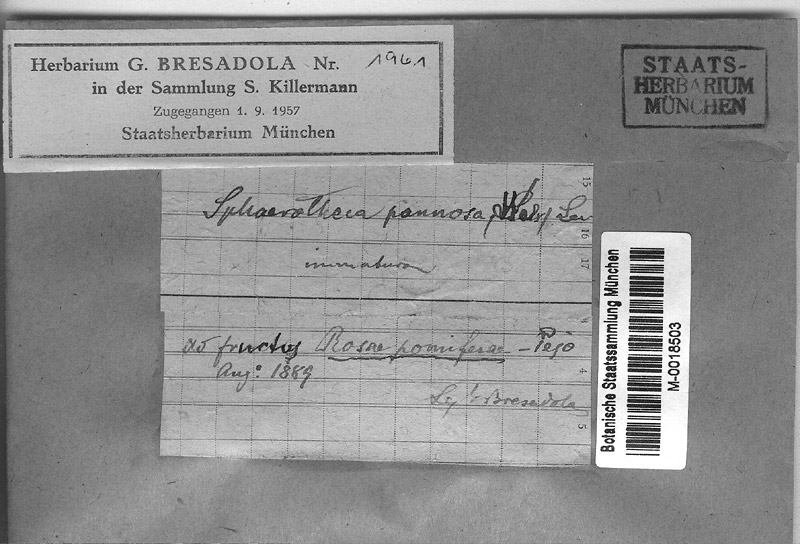 Herbarium G. BRESADOLA Nr. 1961
in der Sammlung S. Killermann
Zugegangen 1. 9. 1957
Staatsherbarium München
STAATS-
HERBARIUM
MÜNCHEN
Sphaerotheca pannosa Lev
immatura
ad fructus Rosae pomiferae - Pejo
Aug: 1889
Leg. Bresadola
15
16
17
4
5
Botanische Staatssammlung München
M-0018503